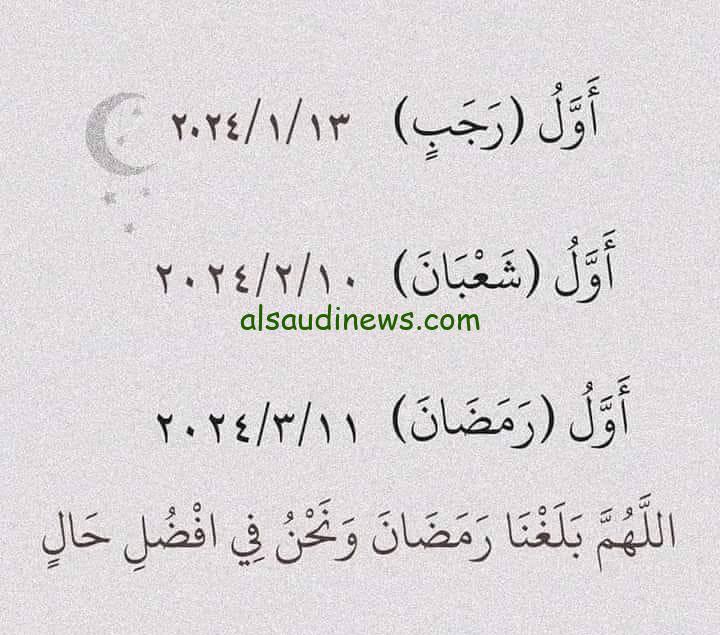 أَوَّلُ (رَجَبٍ) ٢٠٢٤/١/١٣
أَوَّلُ (شَعْبَانَ) ٢٠٢٤/٢/١٠
alsaudinews.com
أَوَّلُ (رَمَضَانَ) ٢٠٢٤/٣/١١
اللَّهُمَّ بَلَغْنَا رَمَضَانَ وَنَحْنُ فِي افْضُلِ حَالٍ